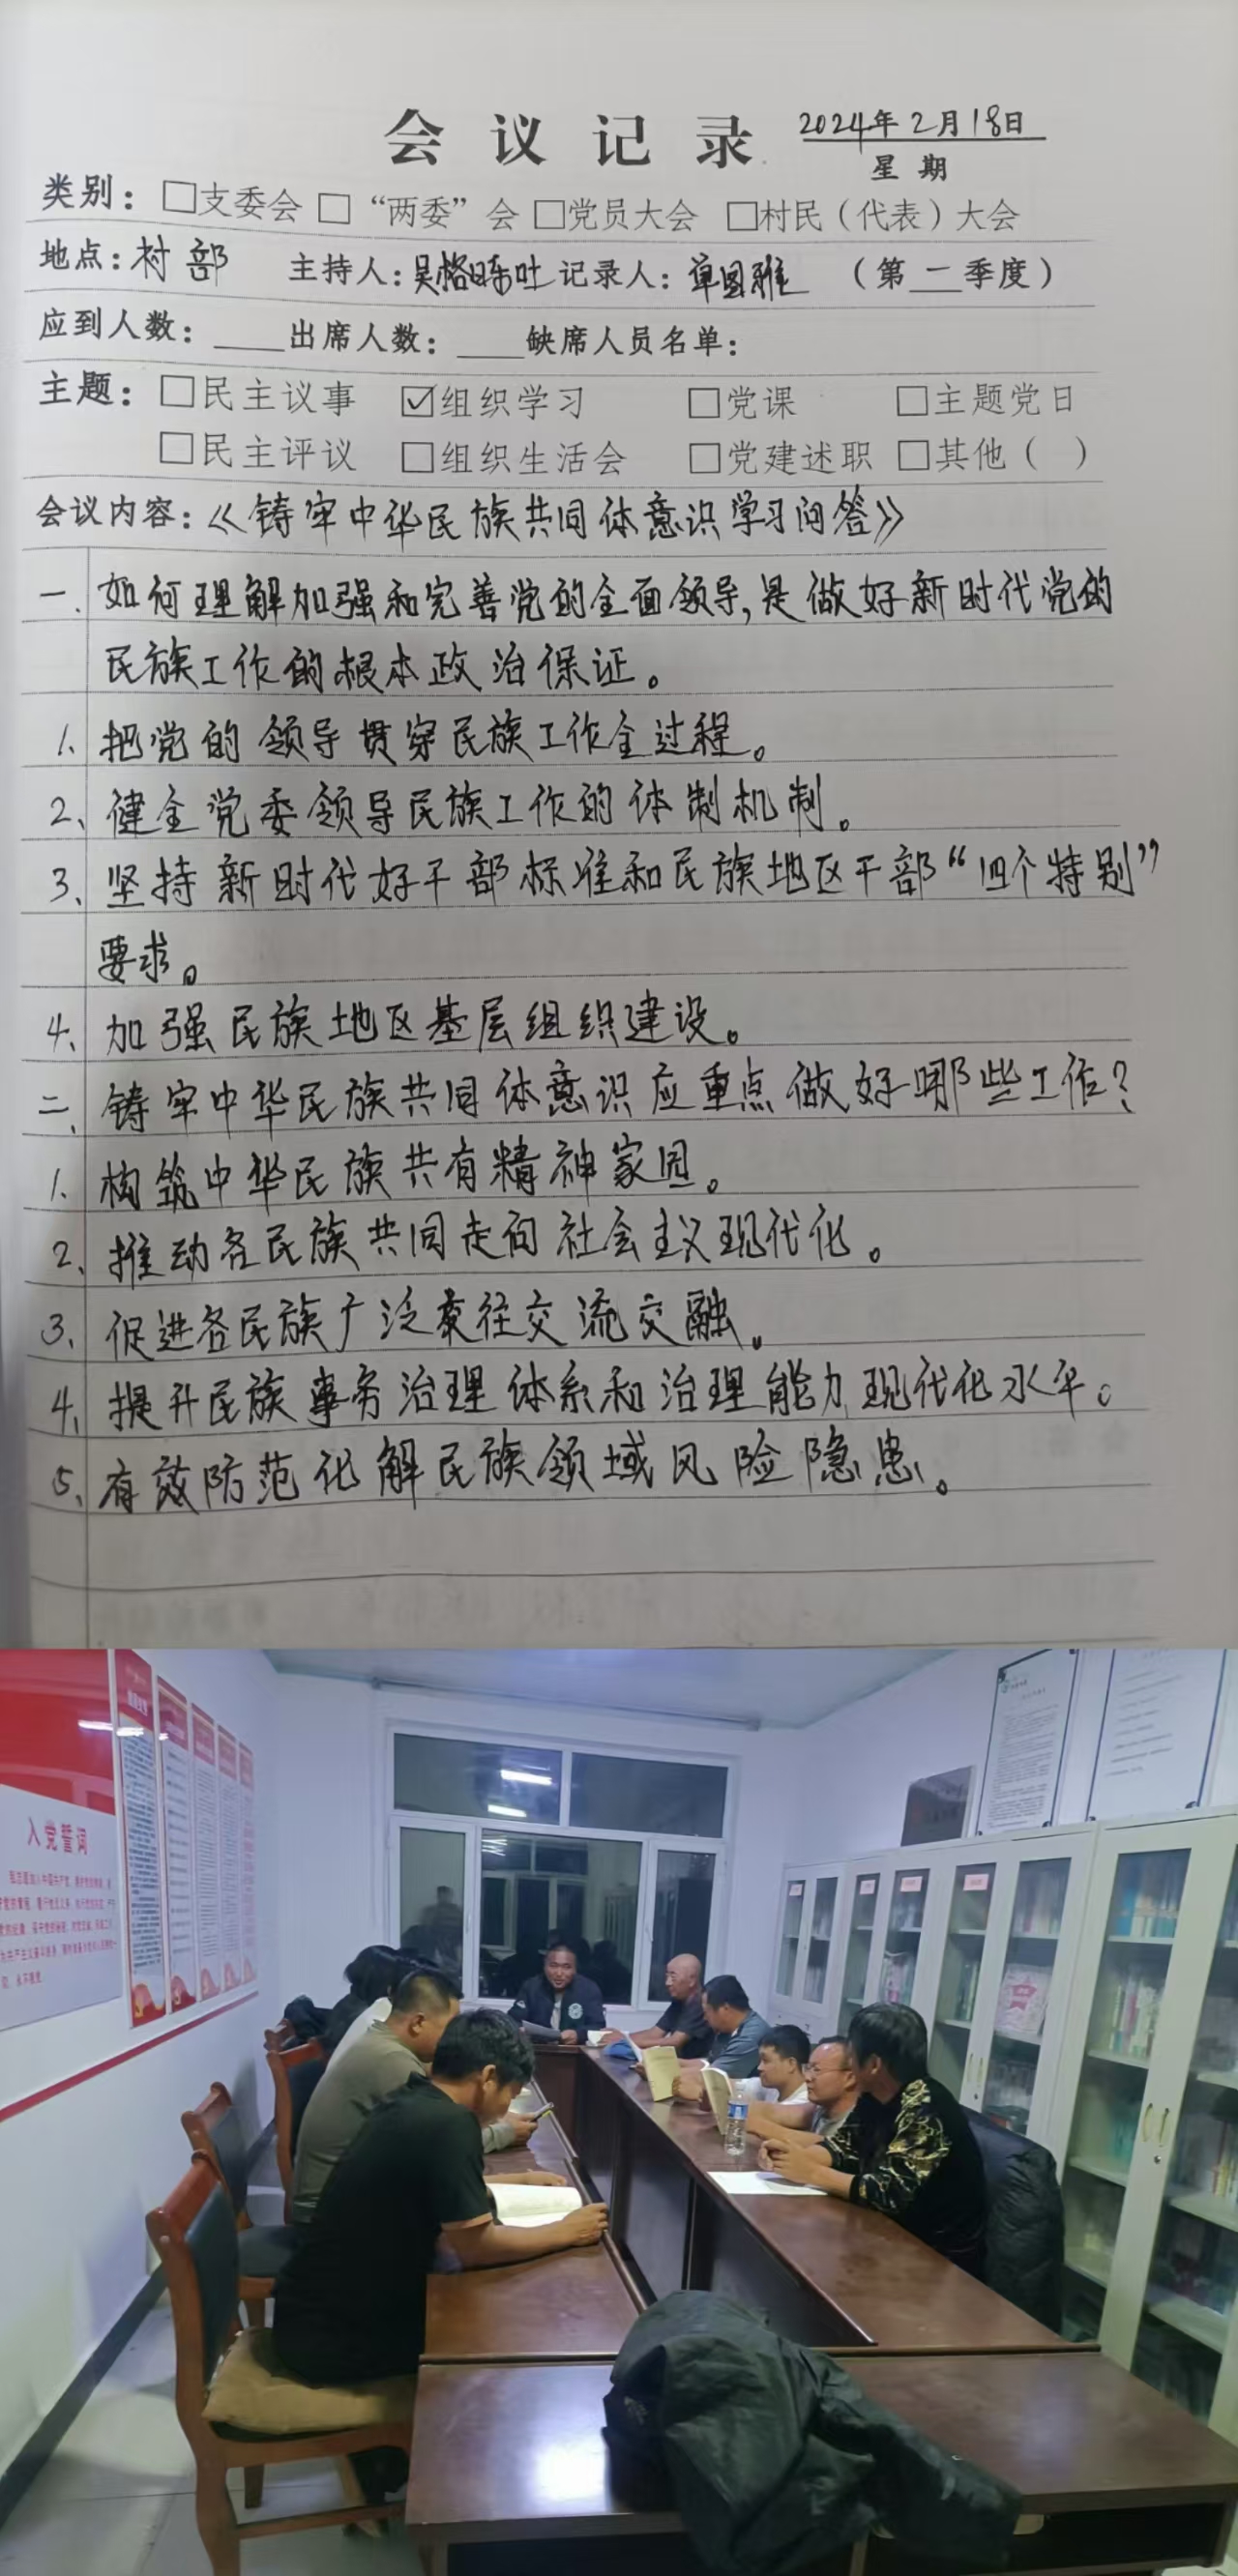 会议记录 2024年2月18日
星期
类别：□支委会 □“两委”会 □党员大会 □村民（代表）大会
地点：村部 主持人：吴格日乐吐 记录人：单国雅 （第一季度）
应到人数：____出席人数：____缺席人员名单：
主题：□民主议事 ☑组织学习 □党课 □主题党日
□民主评议 □组织生活会 □党建述职 □其他（ ）
会议内容：《铸牢中华民族共同体意识学习问答》
一、如何理解加强和完善党的全面领导,是做好新时代党的
民族工作的根本政治保证。
1、把党的领导贯穿民族工作全过程。
2、健全党委领导民族工作的体制机制。
3、坚持新时代好干部标准和民族地区干部“四个特别”
要求。
4、加强民族地区基层组织建设。
二、铸牢中华民族共同体意识应重点做好哪些工作？
1、构筑中华民族共有精神家园。
2、推动各民族共同走向社会主义现代化。
3、促进各民族广泛交往交流交融。
4、提升民族事务治理体系和治理能力现代化水平。
5、有效防范化解民族领域风险隐患。
入党誓词